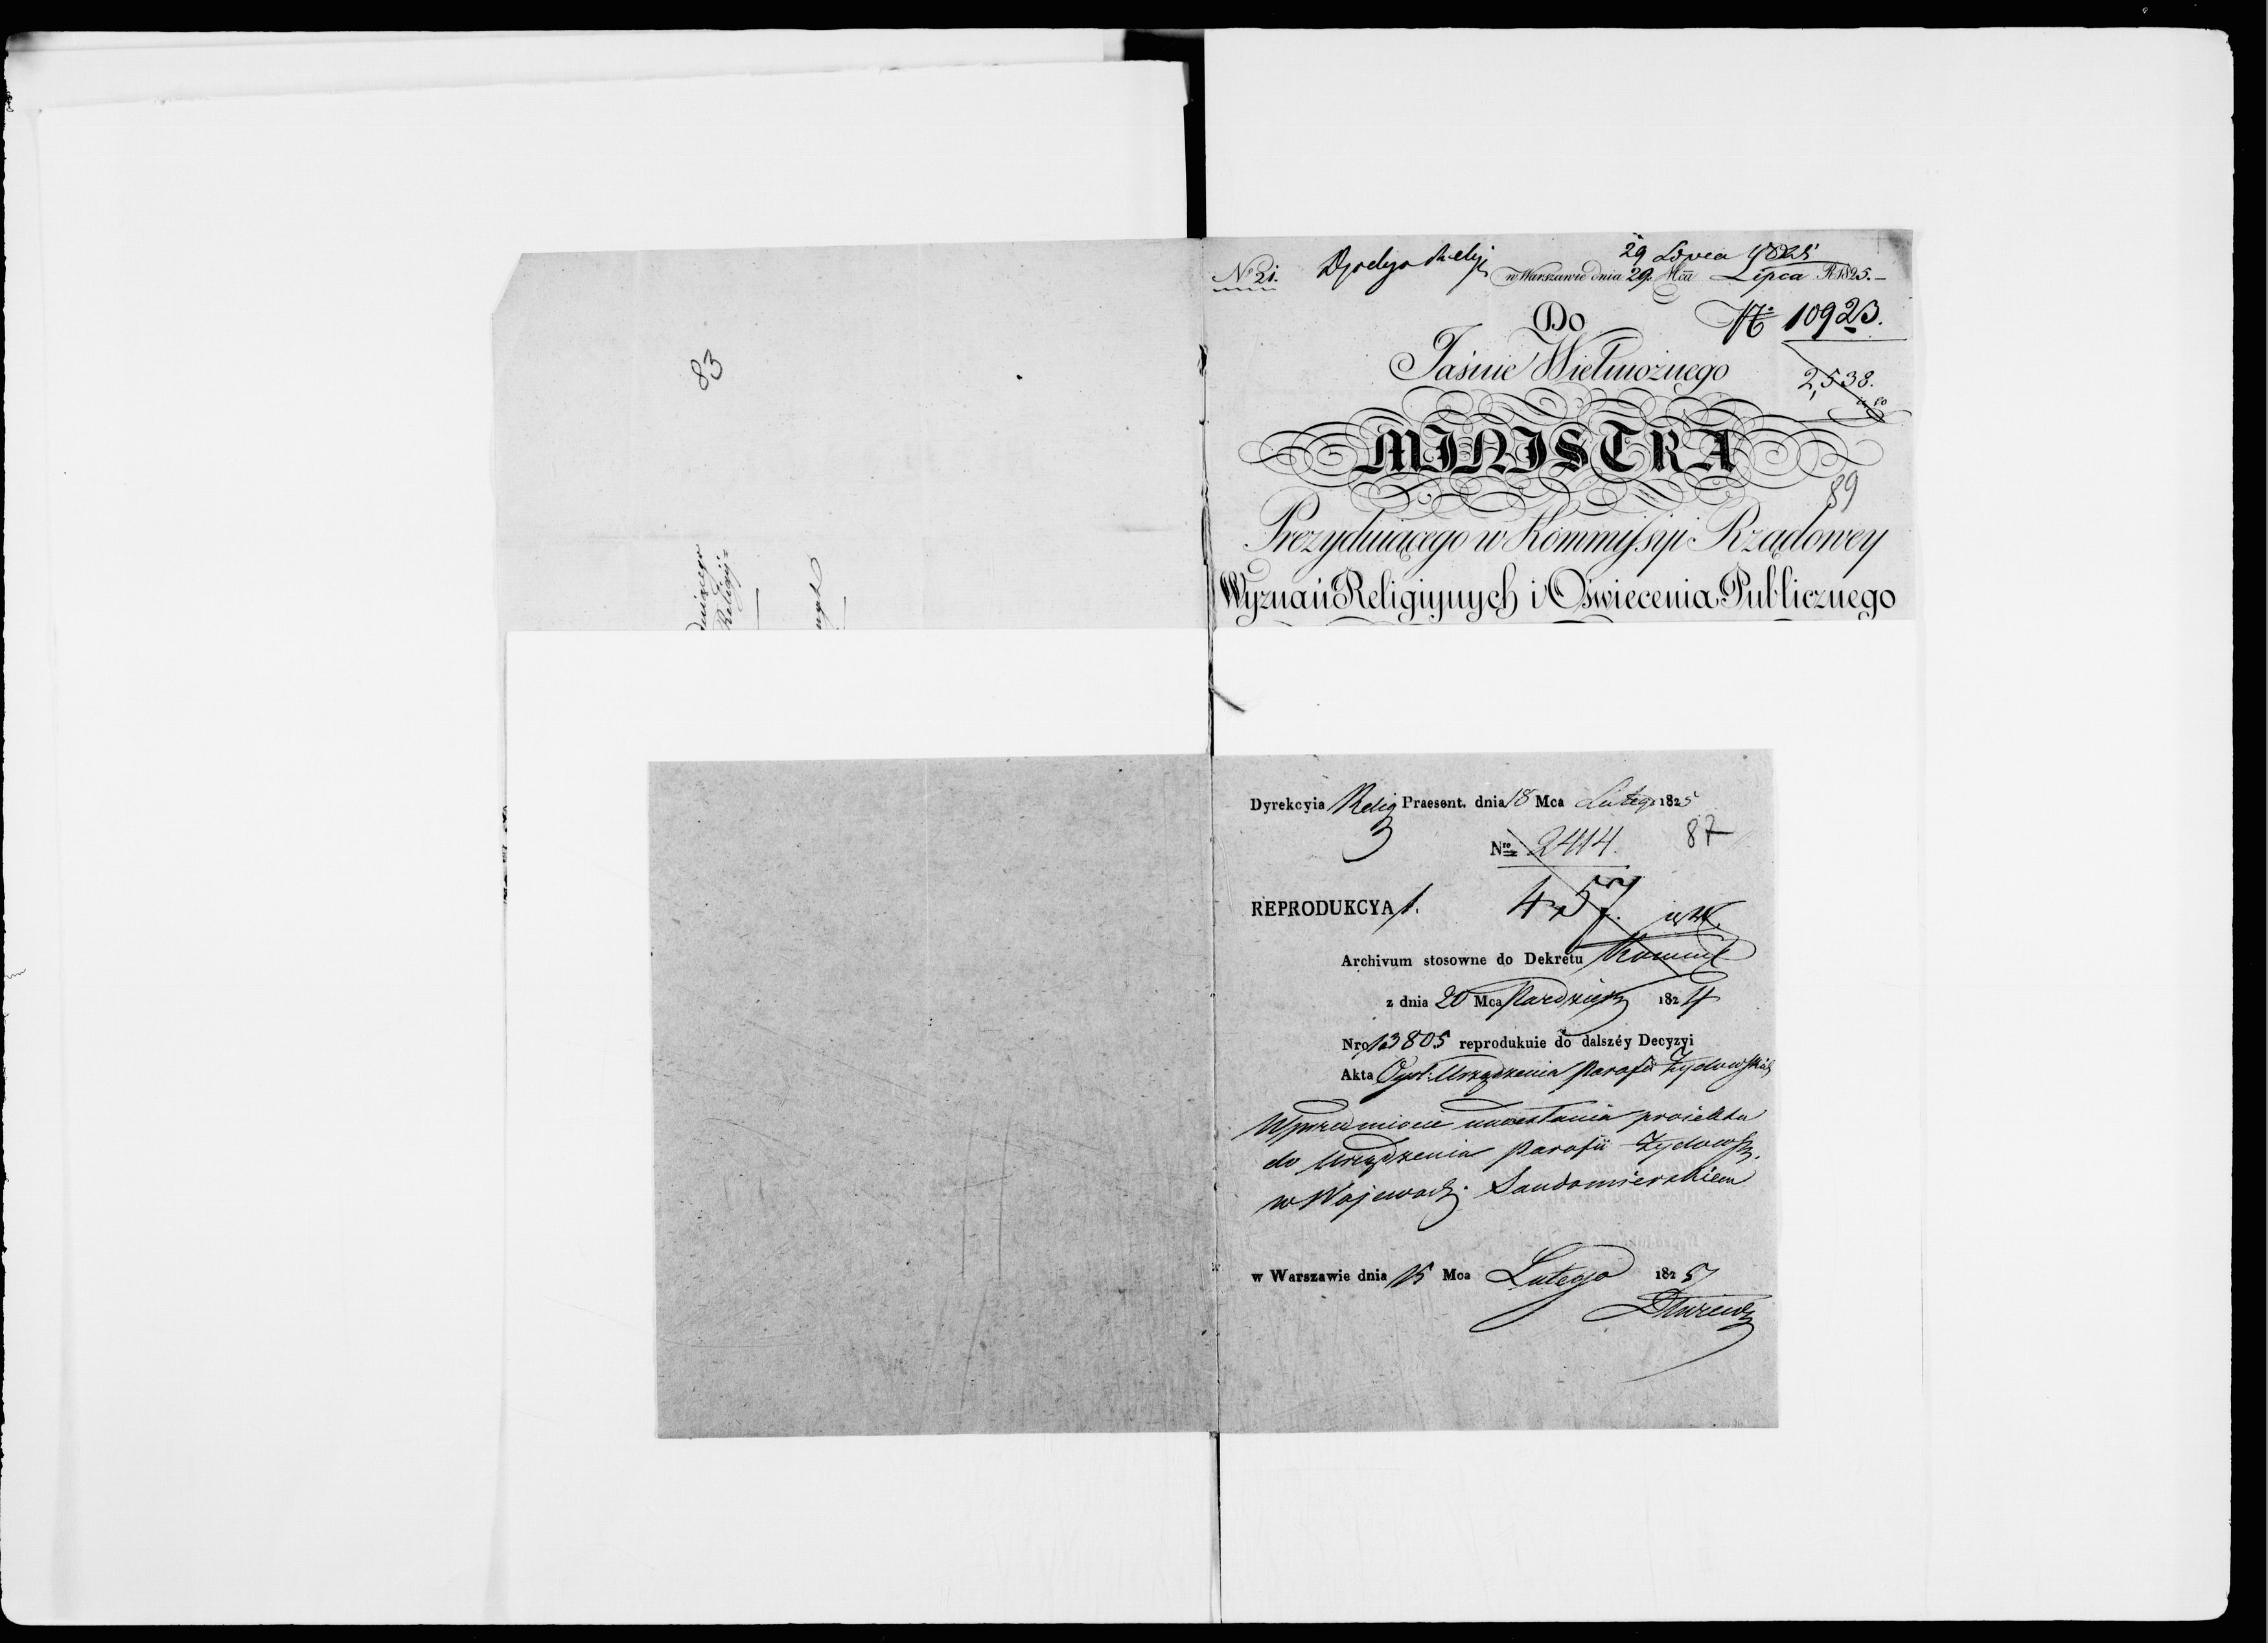 83
29 Lipca 1825
N° 21. Dyrekcya Relig w Warszawie dnia 29. Mca Lipca R. 1825.
Do
N° 10923.
Jaśnie Wielmożnego
2,538.
MINISTRA
89
Prezyduiącego w Kommissyi Rządowey
Wyznań Religiynych i Oświecenia Publicznego
Dyrekcyia Relig Praesent. dnia 18 Mca Lutego 1825
87
Nro 2414.
REPRODUKCYA 1. 457.
Archivum stosowne do Dekretu
z dnia 20 Mca Pazdzier 1824
Nro 13805 reprodukuie do dalszéy Decyzyi
Akta Ogol: Urządzenia Parafii Żydowskich
W przedmiocie nadesłania proiektu
do Urządzenia Parafii Żydowsk.
w Wojewodz. Sandomierskiem
w Warszawie dnia 15 Mca Lutego 1825